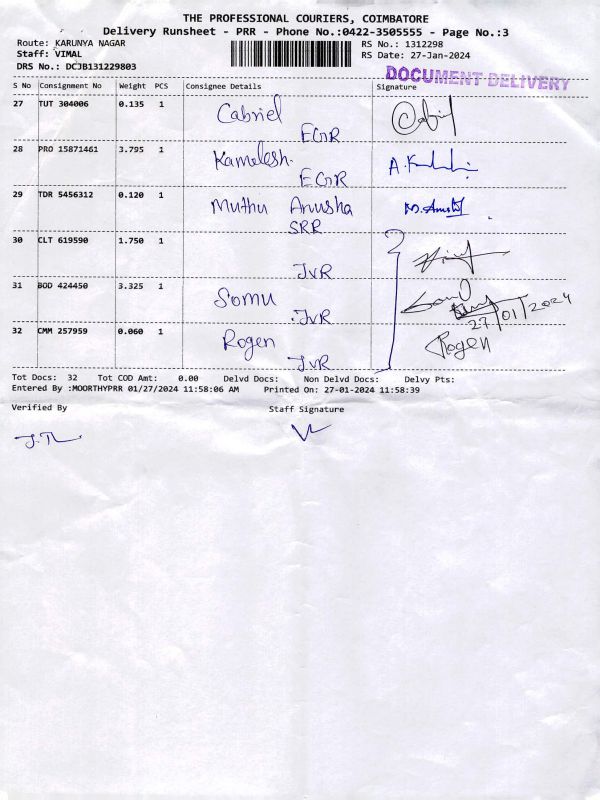 THE PROFESSIONAL COURIERS, COIMBATORE
Delivery Runsheet - PRR - Phone No.:0422-3505555 - Page No.:3
Route: KARUNYA NAGAR RS No.: 1312298
Staff: VIMAL RS Date: 27-Jan-2024
DRS No.: DCJB131229803
DOCUMENT DELIVERY
S No Consignment No Weight PCS Consignee Details Signature
27 TUT 304006 0.135 1 Gabriel
EGR
28 PRO 15871461 3.795 1 Kamelesh.
EGR
29 TDR 5456312 0.120 1 Muthu Anusha
SRR
30 CLT 619590 1.750 1
JVR
31 BOD 424450 3.325 1 Somu
JVR 27/01/2024
32 CMM 257959 0.060 1 Rogen Rogen
JVR
Tot Docs: 32 Tot COD Amt: 0.00 Delvd Docs: Non Delvd Docs: Delvy Pts:
Entered By :MOORTHYPRR 01/27/2024 11:58:06 AM Printed On: 27-01-2024 11:58:39
Verified By Staff Signature